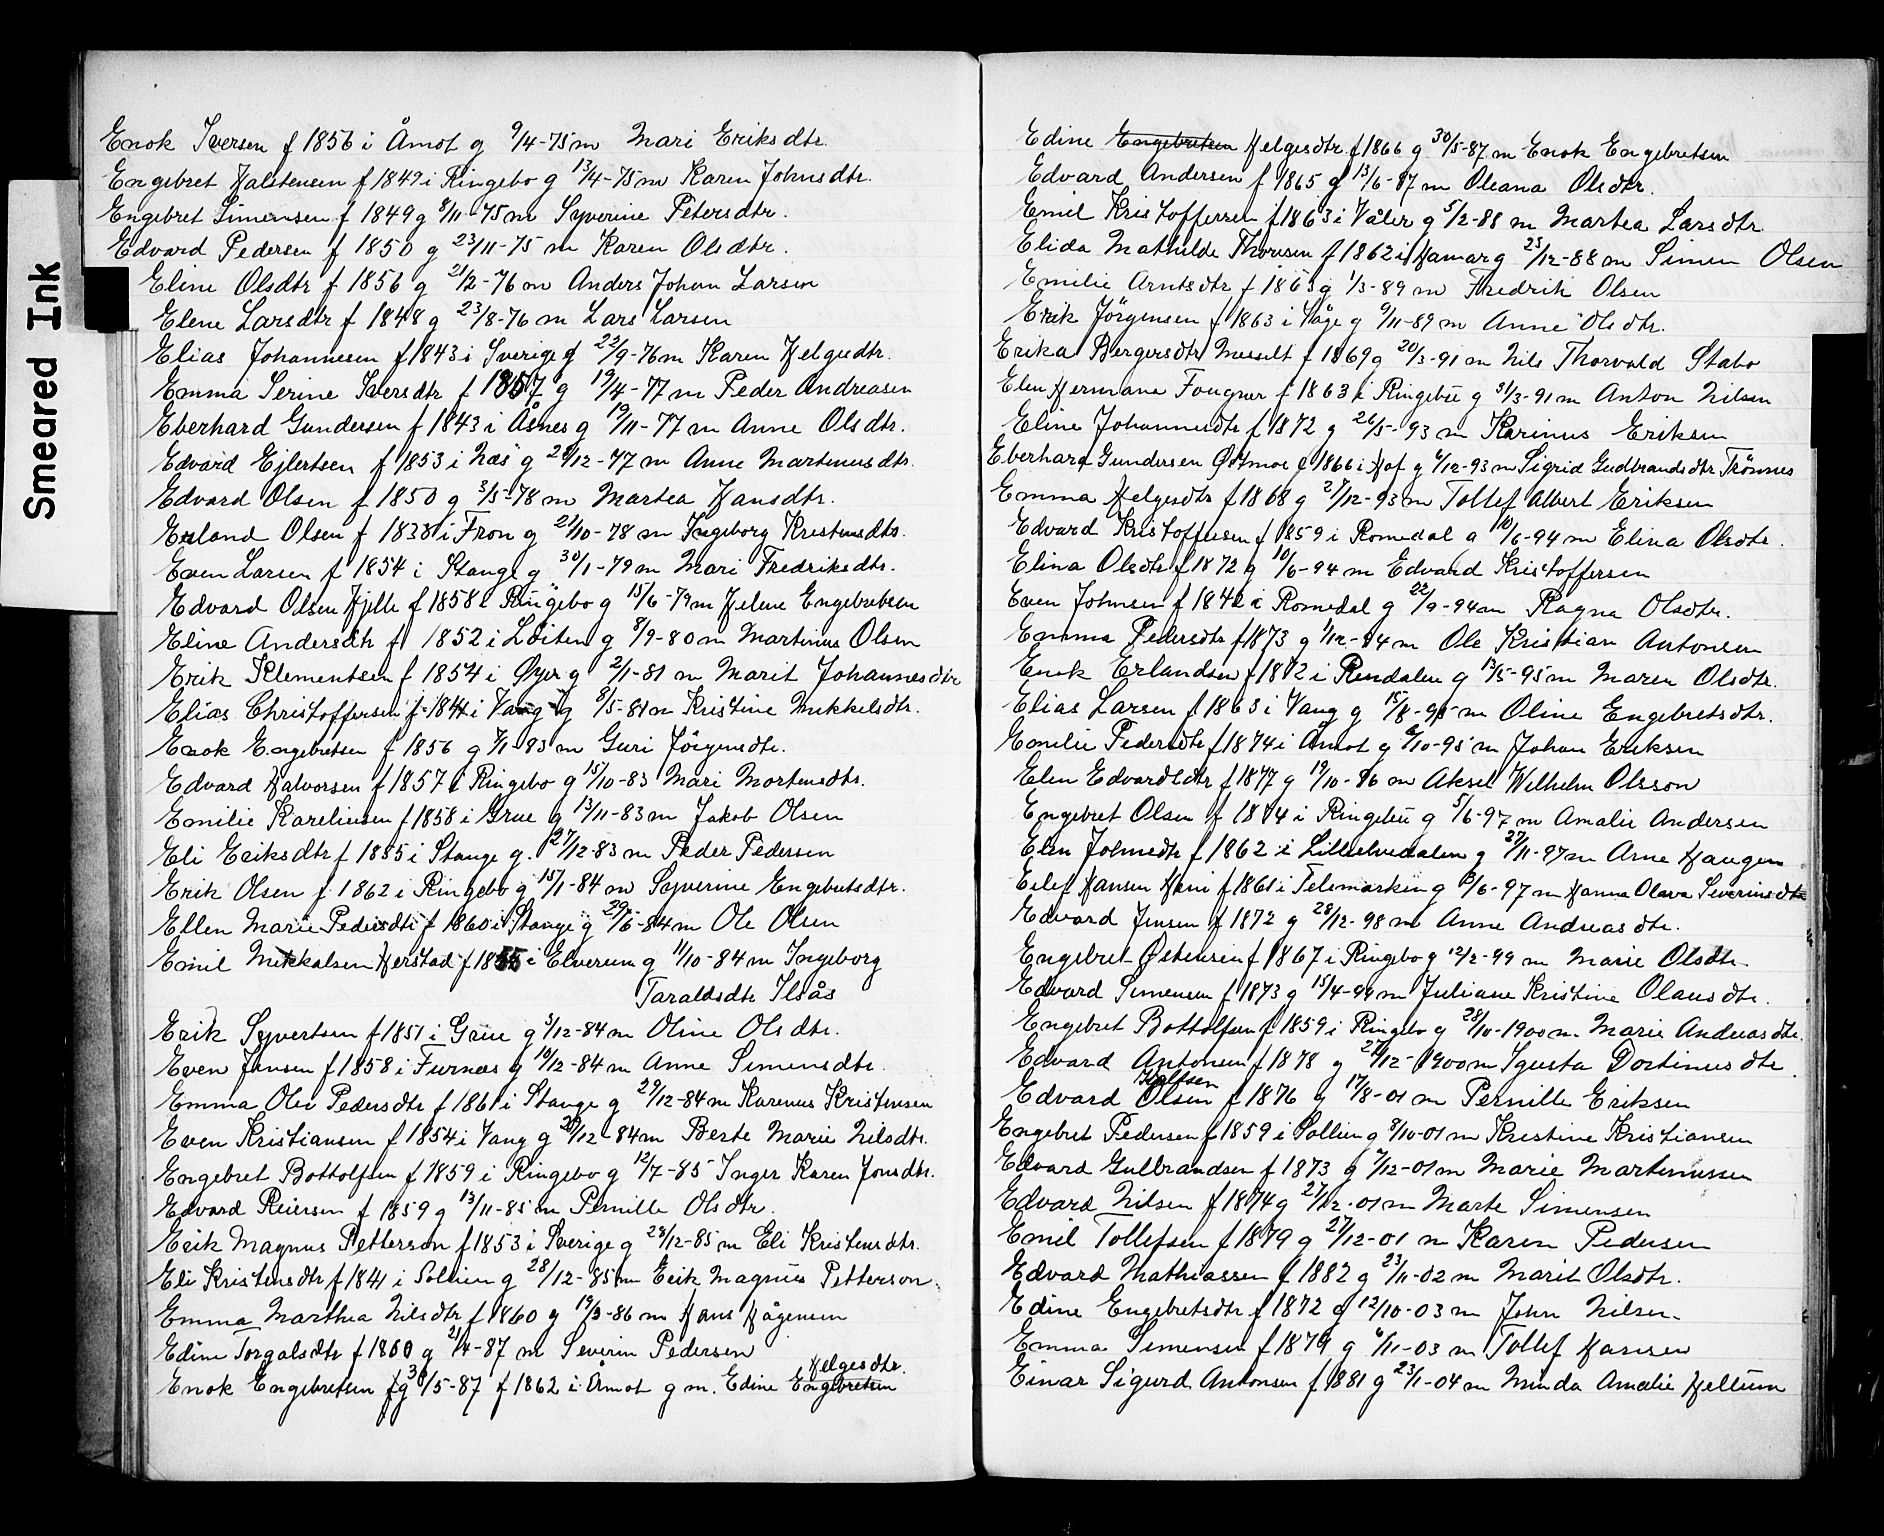 Smeared Ink
Enok Iversen f 1856 i Åmot g 9/4-75 m Mari Eriksdtr.
Engebret Halstensen f 1849 i Ringebo g 13/4-75 m Karen Johnsdtr.
Engebret Simensen f 1849 g 8/11-75 m Syverine Petersdtr.
Edvard Pedersen f 1850 g 23/11-75 m Karen Olsdtr.
Eline Olsdtr f 1856 g 21/2-76 m Anders Johan Larsen
Elene Larsdtr f 1848 g 23/8-76 m Lars Larsen
Elias Johannesen f 1843 i Sverige g 22/9-76 m Karen Helgesdtr.
Emma Serine Iversdtr f 1857 g 19/4-77 m Peder Andreasen
Eberhard Gundersen f 1843 i Åsnes g 19/11-77 m Anne Olsdtr.
Edvard Ejlertsen f 1853 i Næs g 28/12-77 m Anne Martinusdtr.
Edvard Olsen f 1850 g 3/5-78 m Martea Hansdtr.
Erland Olsen f 1838 i Fron g 21/10-78 m Ingeborg Kristensdtr.
Even Larsen f 1854 i Stange g 30/1-79 m Mari Fredriksdtr.
Edvard Olsen Hjelle f 1858 i Ringebo g 15/6-79 m Helene Engebretsen
Eline Andersdtr f 1852 i Løiten g 8/9-80 m Martinus Olsen
Erik Klementsen f 1854 i Øyer g 2/1-81 m Marit Johannesdtr
Elias Christoffersen f 1844 i Vang g 8/5-81 m Kristine Mikkelsdtr.
Enok Engebretsen f 1856 g 7/1-83 m Guri Jörgensdtr.
Edvard Halvorsen f 1857 i Ringebo g 15/10-83 Mari Mortensdtr.
Emilie Karelinsen f 1858 i Grue g 13/11-83 m Jakob Olsen
Eli Eriksdtr f 1855 i Stange g. 27/12-83 m Peder Pedersen
Erik Olsen f 1862 i Ringebo g 15/1-84 m Syverine Engebretsdtr.
Ellen Marie Pedersdtr f 1860 i Stange g 29/6-84 m Ole Olsen
Emil Mikkalsen Herstad f 1855 i Elverum g 11/10-84 m Ingeborg
Taraldsdtr Ilsås
Erik Syvertsen f 1851 i Grue g 3/12-84 m Oline Olsdtr.
Even Jensen f 1858 i Furnæs g 19/12-84 m Anne Simensdtr.
Emma Olei Pedersdtr f 1861 i Stange g 29/12-84 m Karenus Kristensen
Even Kristiansen f 1854 i Vang g 28/12-84 m Berte Marie Nilsdtr.
Engebret Bottolfsen f 1859 i Ringebo g 12/7-85 Inger Karen Jonsdtr.
Edvard Reiersen f 1859 g 13/11-85 m Pernille Olsdtr.
Erik Magnus Petterson f 1853 i Sverige g 28/12-85 m Eli Kristensdtr.
Eli Kristensdtr f 1841 i Sollien g 28/12-85 m Erik Magnus Petterson.
Emma Marthea Nilsdtr f 1860 g 19/3-86 m Hans Hågensen
Edine Torgalsdtr f 1860 g 21/4-87 m Severin Pedersen
Helgesdtr.
Enok Engebretsen f g 30/5-87 f 1862 i Åmot g m. Edine Engebretsen
Edine Engebretsen Helgesdtr. f 1866 g 30/5-87 m Enok Engebretsen
Edvard Andersen f 1865 g 13/6-87 m Oleana Olsdtr.
Emil Kristoffersen f 1863 i Våler g 5/2-88 m Martea Larsdtr.
Elida Mathilde Thoresen f 1862 i Hamar g 25/12-88 m Simen Olsen
Emilie Arntsdtr f 1865 g 1/3-89 m Fredrik Olsen
Erik Jörgensen f 1863 i Våge g 9/11-89 m Anne Olsdtr.
Erika Bergersdtr Messelt f 1869 g 20/3-91 m Nils Thorvald Stabo
Elen Hermane Fougner f 1863 i Ringebu g 31/3-91 m Anton Nilsen
Eline Johannesdtr f 1872 g 26/5-93 m Karinus Eriksen
Eberhard Gundersen Østmoe f 1866 i Hof g 6/12-93 m Sigrid Gudbrandsdtr Trønnes
Emma Helgesdtr f 1868 g 27/12-93 m Tollef Albert Eriksen
Edvard Kristoffersen f 1859 i Romedal g 10/6-94 m Elina Olsdtr.
Elina Olsdtr f 1872 g 10/6-94 m Edvard Kristoffersen
Even Johnsen f 1842 i Romedal g 22/9-94 m Ragna Olsdtr.
Emma Pedersdtr f 1873 g 1/12-94 m Ole Kristian Antonsen
Enok Erlandsen f 1872 i Rendalen g 13/5-95 m Maren Olsdtr.
Elias Larsen f 1863 i Vang g 15/8-95 m Oline Engebretsdtr.
Emelie Pedersdtr f 1874 i Åmot g 6/10-95 m Johan Eriksen
Elen Edvardsdtr f 1877 g 19/10-96 m Aksel Wilhelm Olsson
Engebret Olsen f 1874 i Ringebu g 5/6-97 m Amalie Andersen
Elen Johnsdtr f 1862 i Lilleelvedalen g 27/11-97 m Arne Haugen
Eilef Hansen Hani f 1861 i Telemarken g 13/6-97 m Hanna Olava Severinsdtr
Edvard Jensen f 1872 g 28/12-98 m Anne Andreasdtr.
Engebret Østensen f 1867 i Ringebo g 12/2-99 m Marie Olsdtr.
Edvard Simensen f 1873 g 15/4-99 m Juliane Kristine Olausdtr.
Engebret Bottolfsen f 1859 i Ringebo g 28/10-1900 m. Marie Andreasdtr.
Edvard Antonsen f 1878 g 27/12-1900 m Igusta Dortinusdtr.
Edvard Olsen f 1876 g 17/8-01 m Pernille Eriksen
Engebret Pedersen f 1859 i Sollien g 8/10-01 m Kristine Kristiansen
Edvard Gulbrandsen f 1873 g 7/12-01 m Marie Martinussen
Edvard Nilsen f 1874 g 27/12-01 m Marte Simensen
Emil Tollefsen f 1879 g 27/12-01 m Karen Pedersen
Edvard Mathiassen f 1882 g 23/11-02 m Marit Olsdtr.
Edine Engebretsdtr f 1872 g 12/10-03 m John Nilsen.
Emma Simensen f 1879 g 6/11-03 m Tollef Hansen
Einar Sigurd Antonsen f 1881 g 23/1-04 m Minda Amalie Hellum